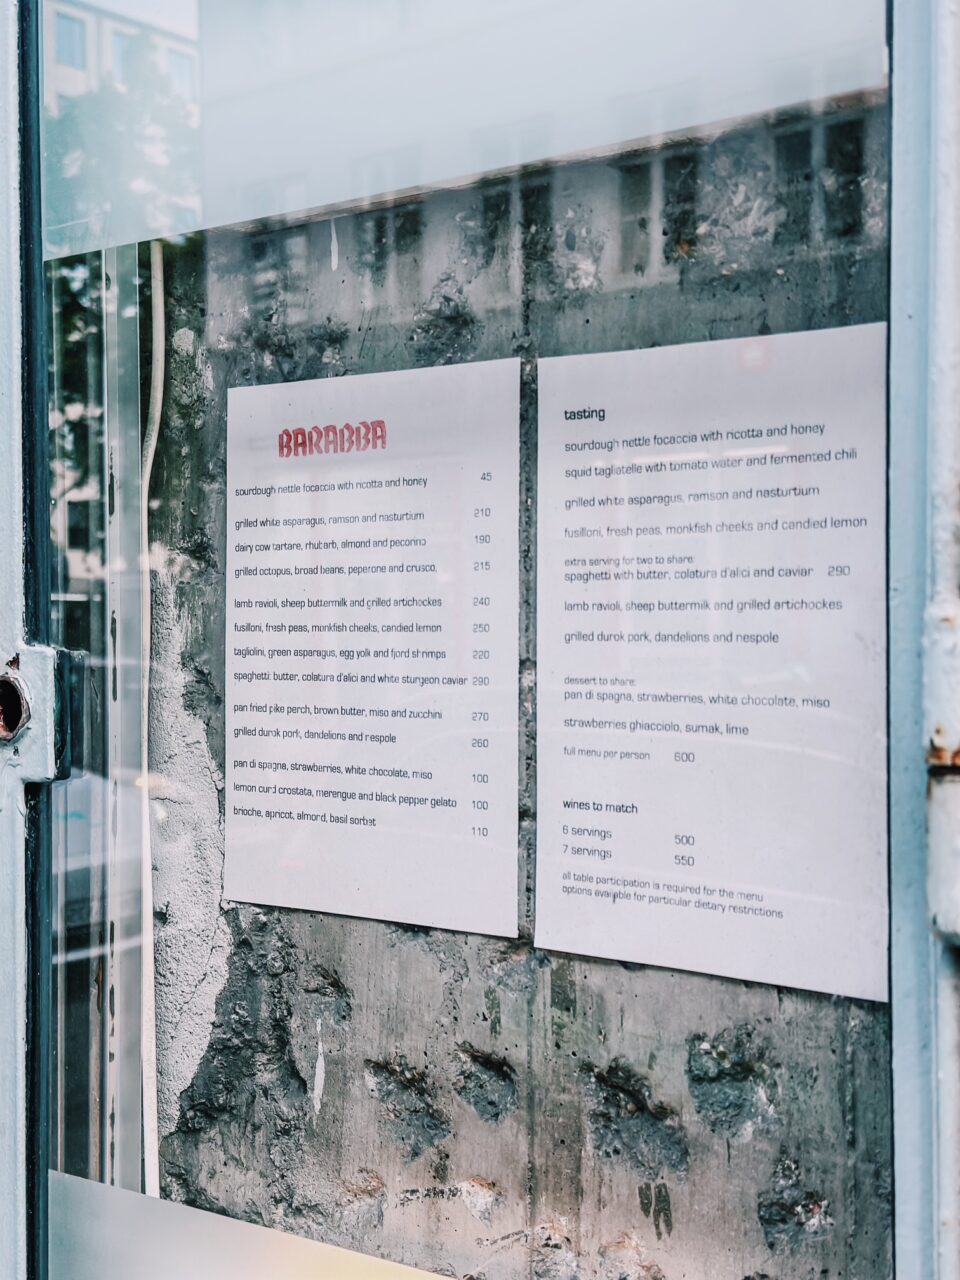 BARABBA
sourdough nettle focaccia with ricotta and honey 45
grilled white asparagus, ramson and nasturtium 210
dairy cow tartare, rhubarb, almond and pecorino 190
grilled octopus, broad beans, peperone and crusco, 215
lamb ravioli, sheep buttermilk and grilled artichockes 240
fusilloni, fresh peas, monkfish cheeks, candied lemon 250
tagliolini, green asparagus, egg yolk and fjord shrimps 220
spaghetti: butter, colatura d'alici and white sturgeon caviar 290
pan fried pike perch, brown butter, miso and zucchini 270
grilled durok pork, dandelions and nespole 260
pan di spagna, strawberries, white chocolate, miso 100
lemon curd crostata, merengue and black pepper gelato 100
brioche, apricot, almond, basil sorbet 110
tasting
sourdough nettle focaccia with ricotta and honey
squid tagliatelle with tomato water and fermented chili
grilled white asparagus, ramson and nasturtium
fusilloni, fresh peas, monkfish cheeks and candied lemon
extra serving for two to share:
spaghetti with butter, colatura d'alici and caviar 290
lamb ravioli, sheep buttermilk and grilled artichockes
grilled durok pork, dandelions and nespole
dessert to share:
pan di spagna, strawberries, white chocolate, miso
strawberries ghiacciolo, sumak, lime
full menu per person 600
wines to match
6 servings 500
7 servings 550
all table participation is required for the menu
options available for particular dietary restrictions